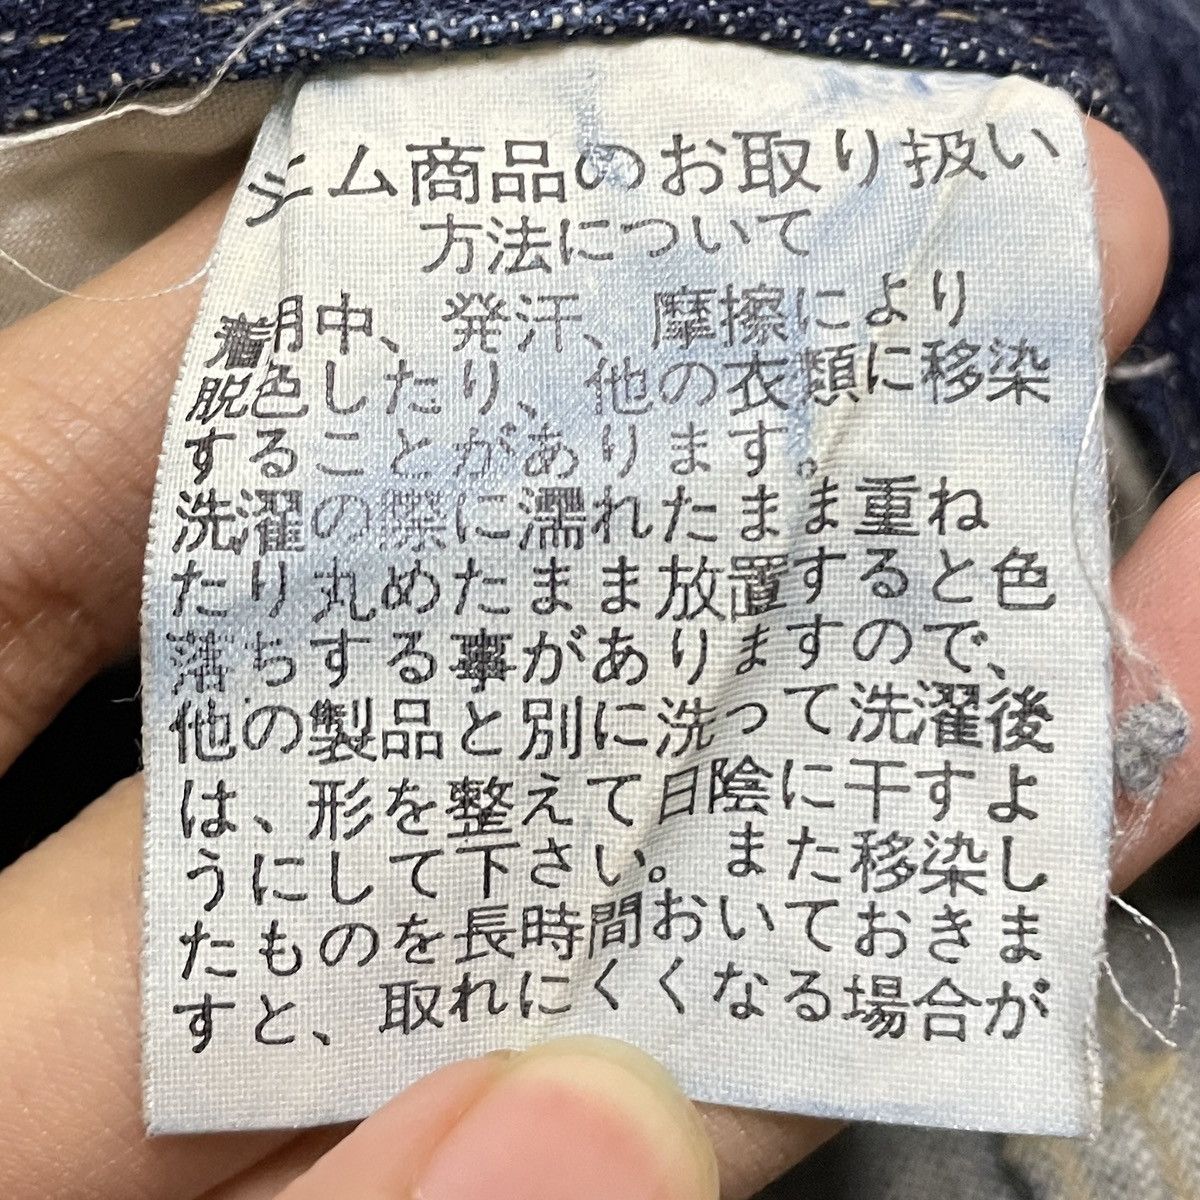 デニム商品のお取り扱い
方法について
着用中、発汗、摩擦により
脱色したり、他の衣類に移染
することがあります。
洗濯の際に濡れたまま重ね
たり丸めたまま放置すると色
落ちする事がありますので、
他の製品と別に洗って洗濯後
は、形を整えて日陰に干すよ
うにして下さい。また移染し
たものを長時間おいておきま
すと、取れにくくなる場合が